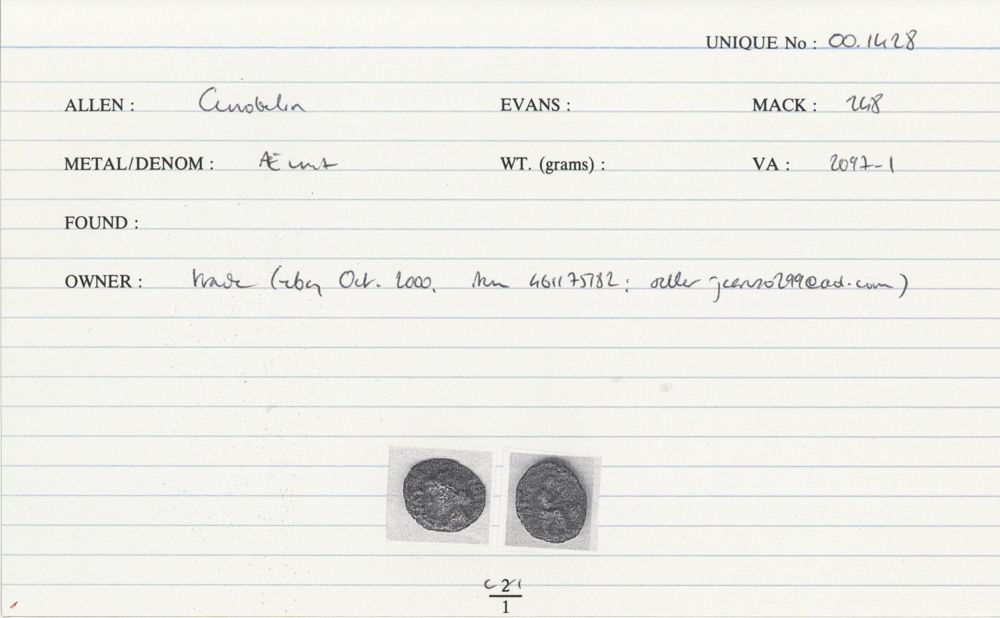 UNIQUE No : 00.1428
ALLEN : Cunobelin EVANS : MACK : 248
METAL/DENOM : Æ unit WT. (grams) : VA : 2097-1
FOUND :
OWNER : trade (ebay Oct. 2000, item 461175182; seller
2
1